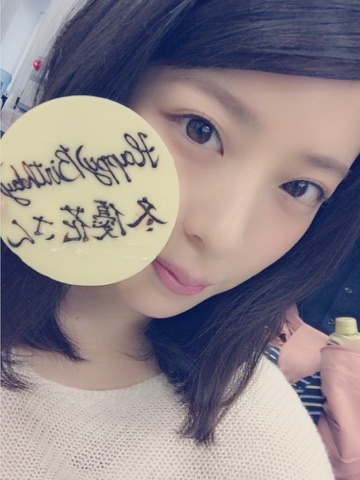 Happy Birthday
冬優花さん